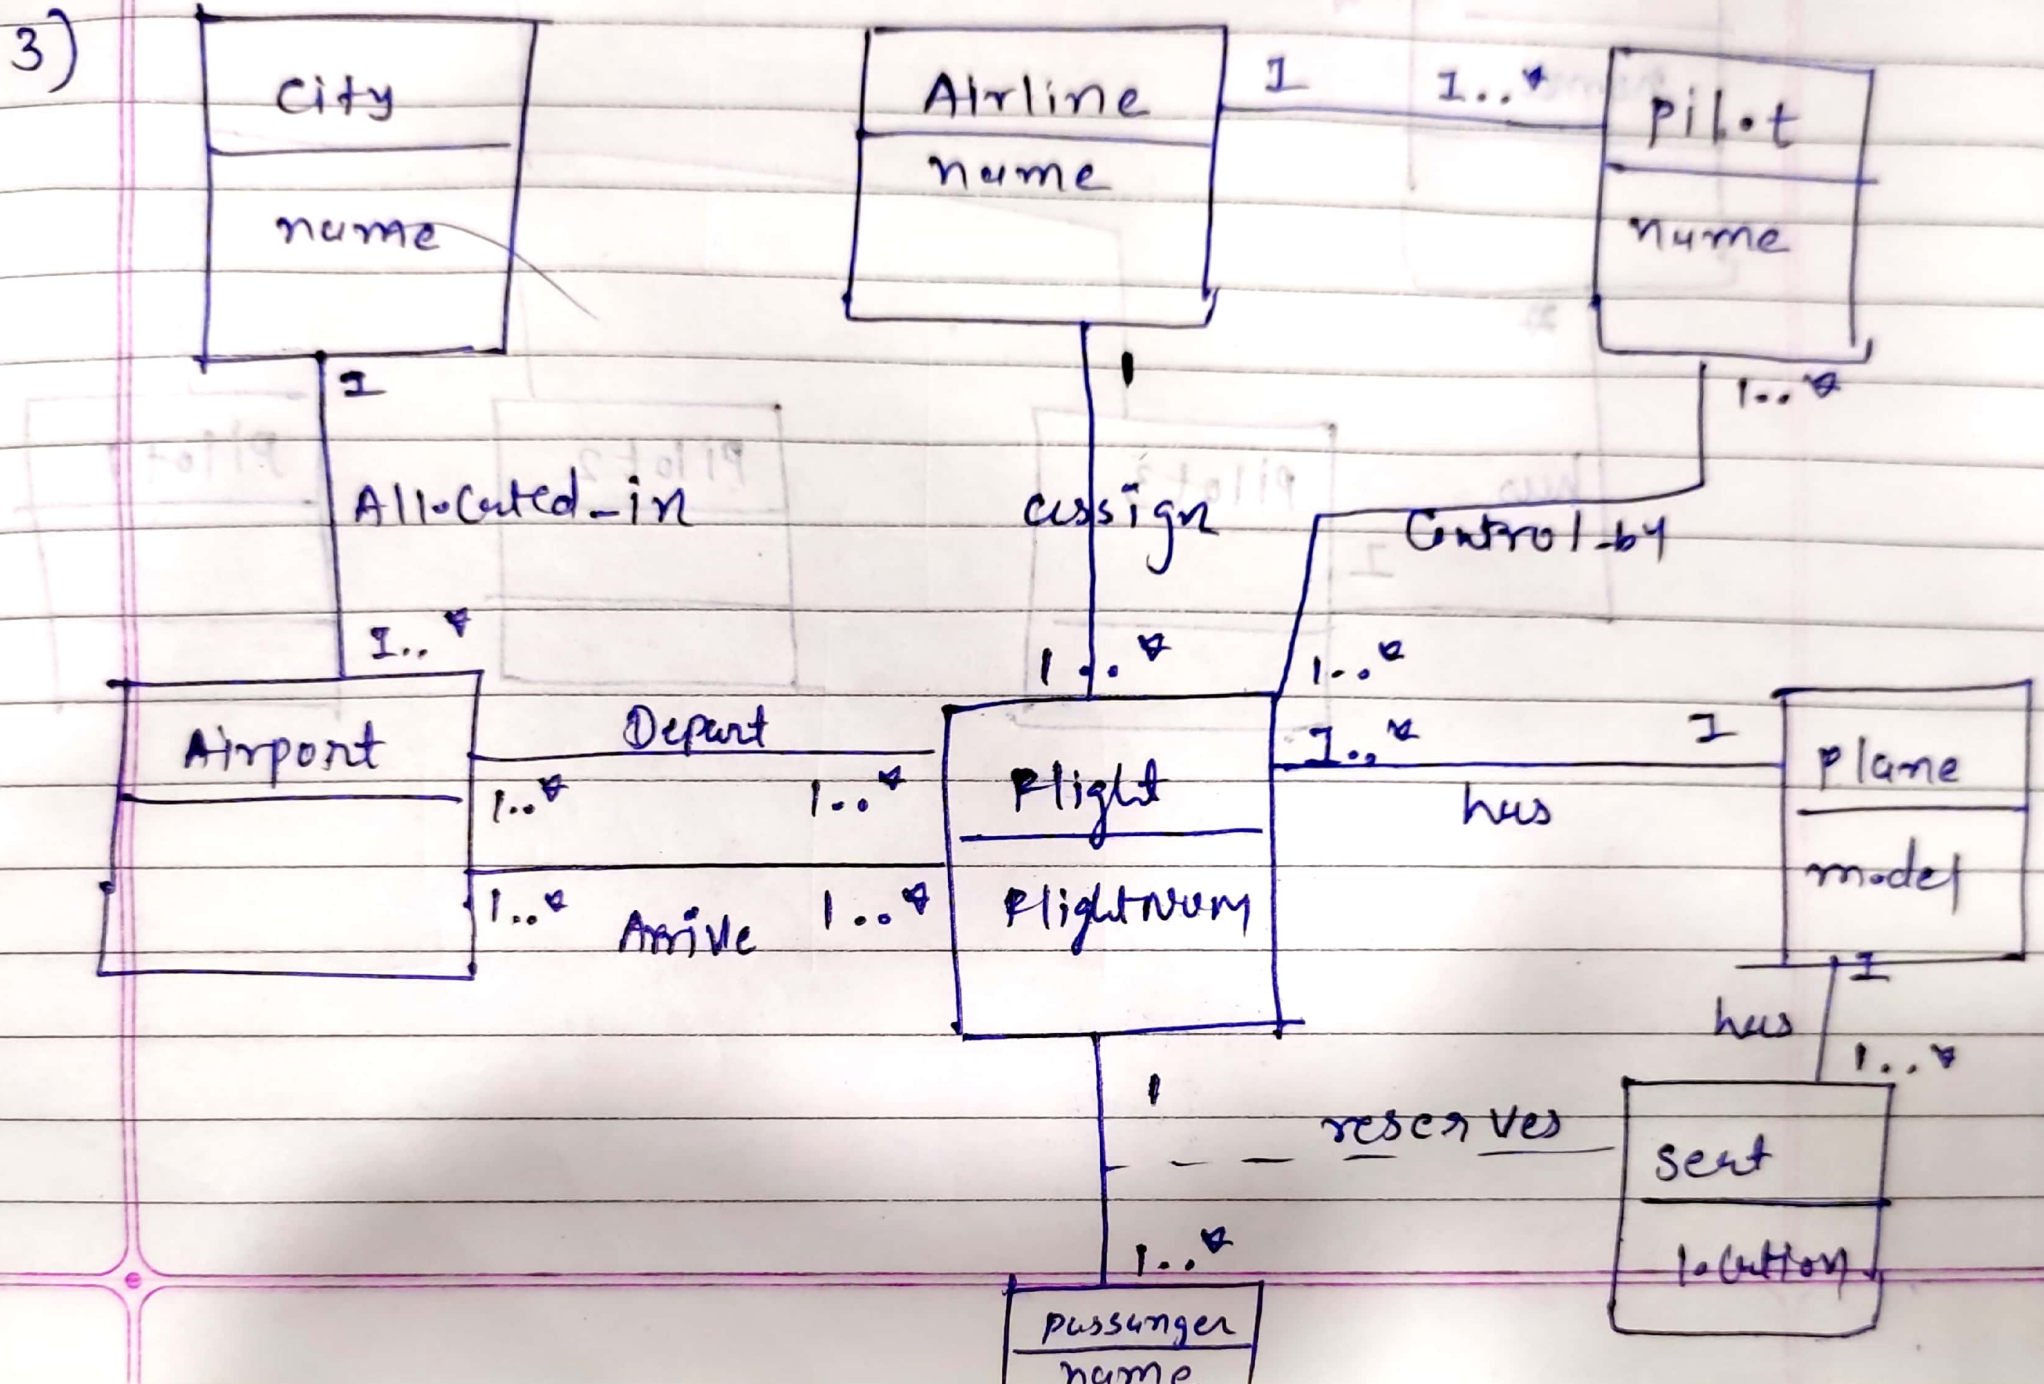 3)
City
name
Airline
name
1 1..*
Pilot
name
1
Allocated_in
1..*
1
assign
1..*
1..*
Control_by
1..*
Airport
Depart
1..* 1..*
1..* 1..*
Arrive
Flight
FlightNum
1..* 1
has
Plane
model
1
has
1..*
seat
location
1
reserves
1..*
passanger
name